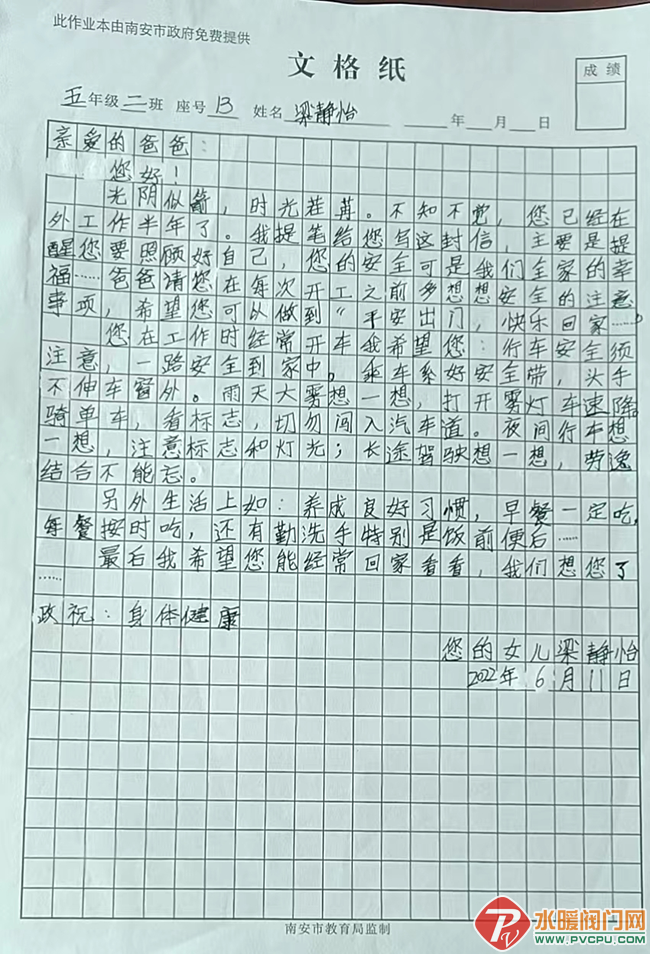 此作业本由南安市政府免费提供
文格纸
成绩
五年级二班 座号13 姓名梁静怡 年 月 日
亲爱的爸爸:
您好!
光阴似箭,时光荏苒。不知不觉,您已经在
外工作半年了。我提笔给您写这封信,主要是提
醒您要照顾好自己,您的安全可是我们全家的幸
福……爸爸请您在每次开工之前多想想安全的注意
事项,希望您可以做到“平安出门,快乐回家……”
您在工作时经常开车我希望您:行车安全须
注意,一路安全到家中。乘车系好安全带,头手
不伸车窗外。雨天大雾想一想,打开雾灯车速降
骑单车,看标志,切勿闯入汽车道。夜间行车想
一想,注意标志和灯光;长途驾驶想一想,劳逸
结合不能忘。
另外生活上如:养成良好习惯,早餐一定吃,
每餐按时吃,还有勤洗手特别是饭前便后……
最后我希望您能经常回家看看,我们想您了
……
政祝:身体健康
您的女儿梁静怡
2022年6月11日
南安市教育局监制
水暖阀门网
www.PVCPU.com